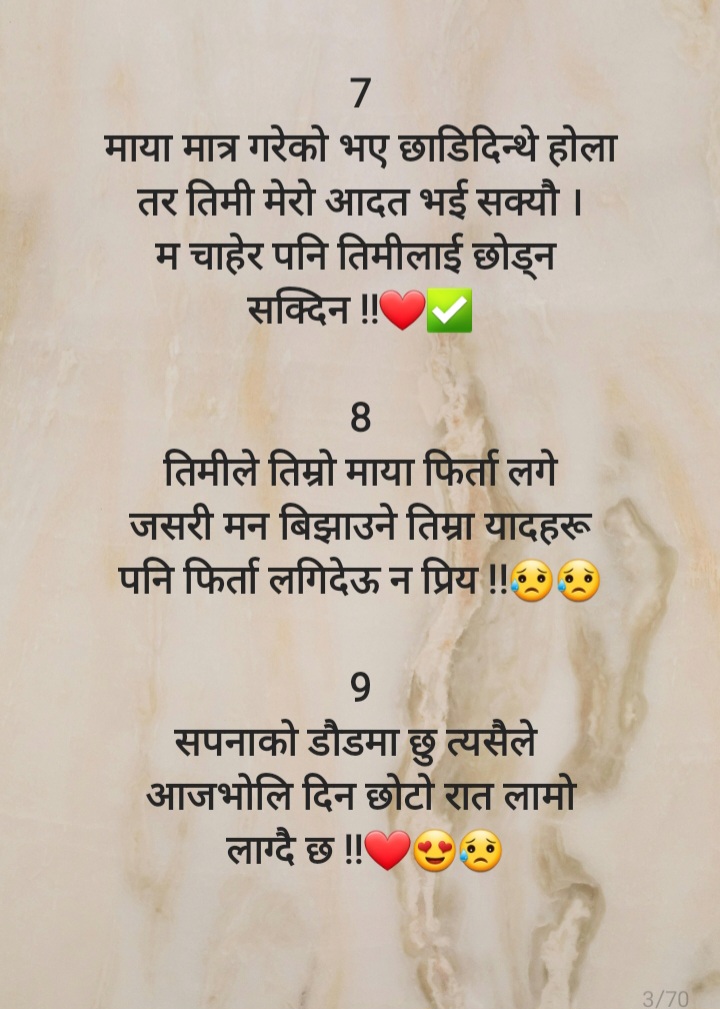 7
माया मात्र गरेको भए छाडिदिन्थे होला
तर तिमी मेरो आदत भई सक्यौ ।
म चाहेर पनि तिमीलाई छोड्न
सक्दिन !!❤️✅
8
तिमीले तिम्रो माया फिर्ता लगे
जसरी मन बिझाउने तिम्रा यादहरू
पनि फिर्ता लगिदेऊ न प्रिय !!😥😥
9
सपनाको डौडमा छु त्यसैले
आजभोलि दिन छोटो रात लामो
लाग्दै छ !!❤️😍😥
3/70